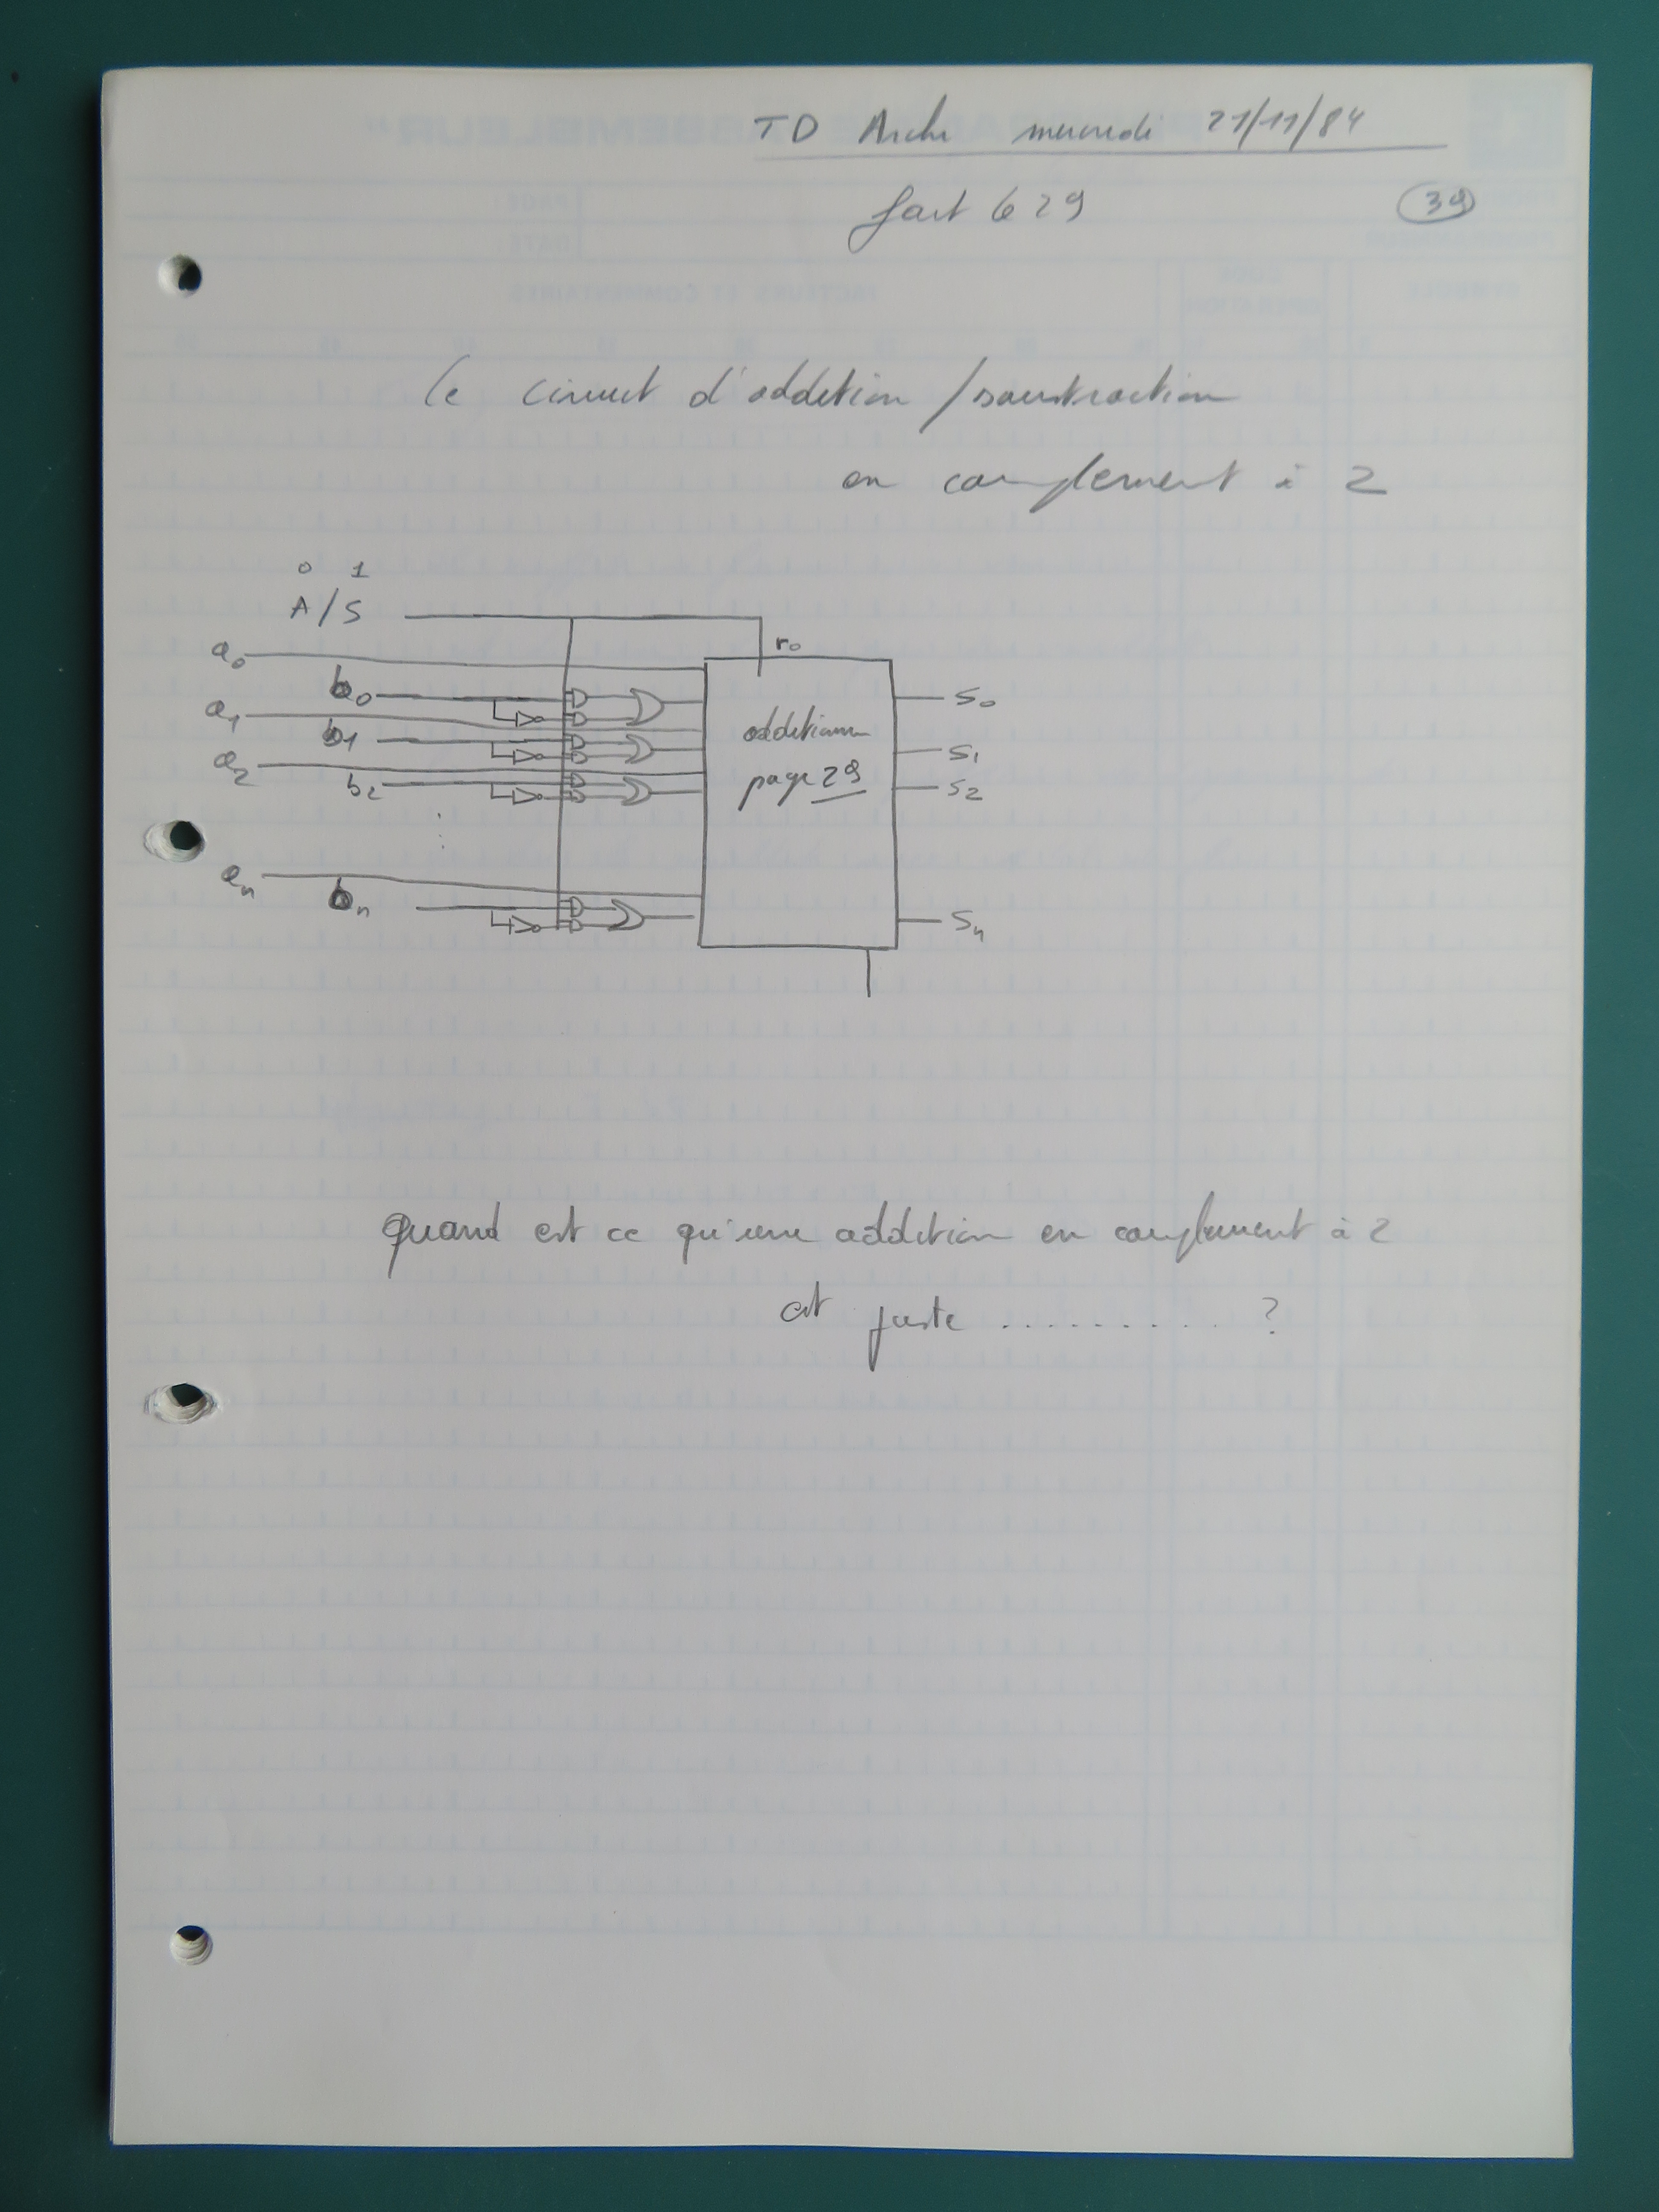 TD Archi mercredi 21/11/84
fait le 29
39
le circuit d'addition / soustraction
en complement à 2
0 1
A/S
r0
a0
b0
s0
a1
b1
additionneur
s1
a2
b2
page 29
s2
an
bn
sn
quand est ce qu'une addition en complement à 2
est juste .......... ?